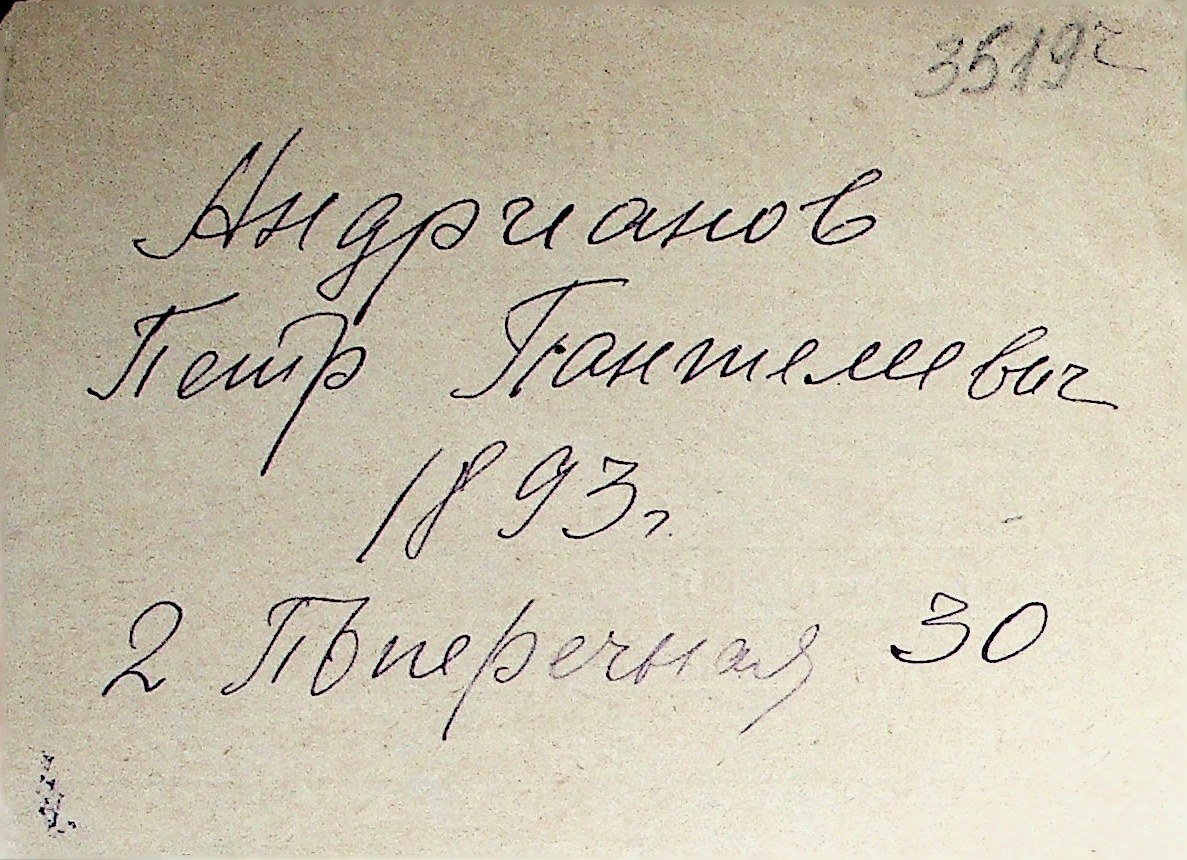 3519г
Андрианов
Петр Пантелеевич
1893г.
2 Поперечная 30